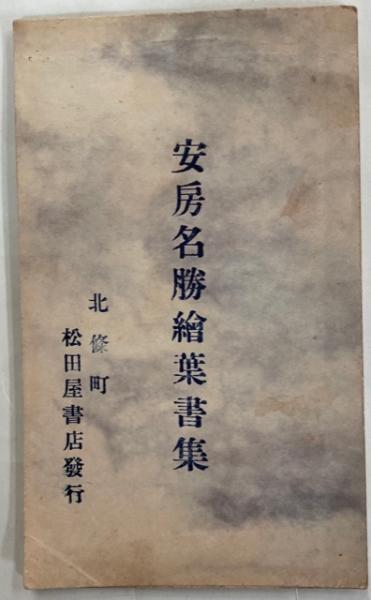 安房名勝繪葉書集
北條町
松田屋書店發行